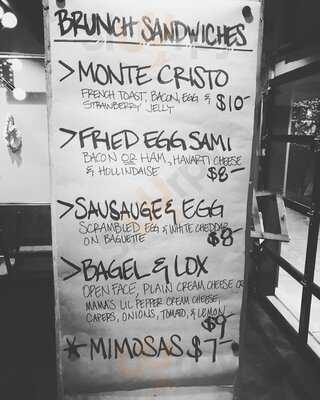 BRUNCH SANDWICHES
>MONTE CRISTO
FRENCH TOAST, BACON, EGG &
STRAWBERRY JELLY $10-
>FRIED EGG SAMI
BACON OR HAM, HAVARTI CHEESE
& HOLLINDAISE $8-
>SAUSAUGE & EGG
SCRAMBLED EGG & WHITE CHEDDAR
ON BAGUETTE $8-
>BAGEL & LOX
OPEN FACE, PLAIN CREAM CHEESE OR
MAMA'S LIL PEPPER CREAM CHEESE,
CAPERS, ONIONS, TOMATO, & LEMON
$9-
*MIMOSAS $7-